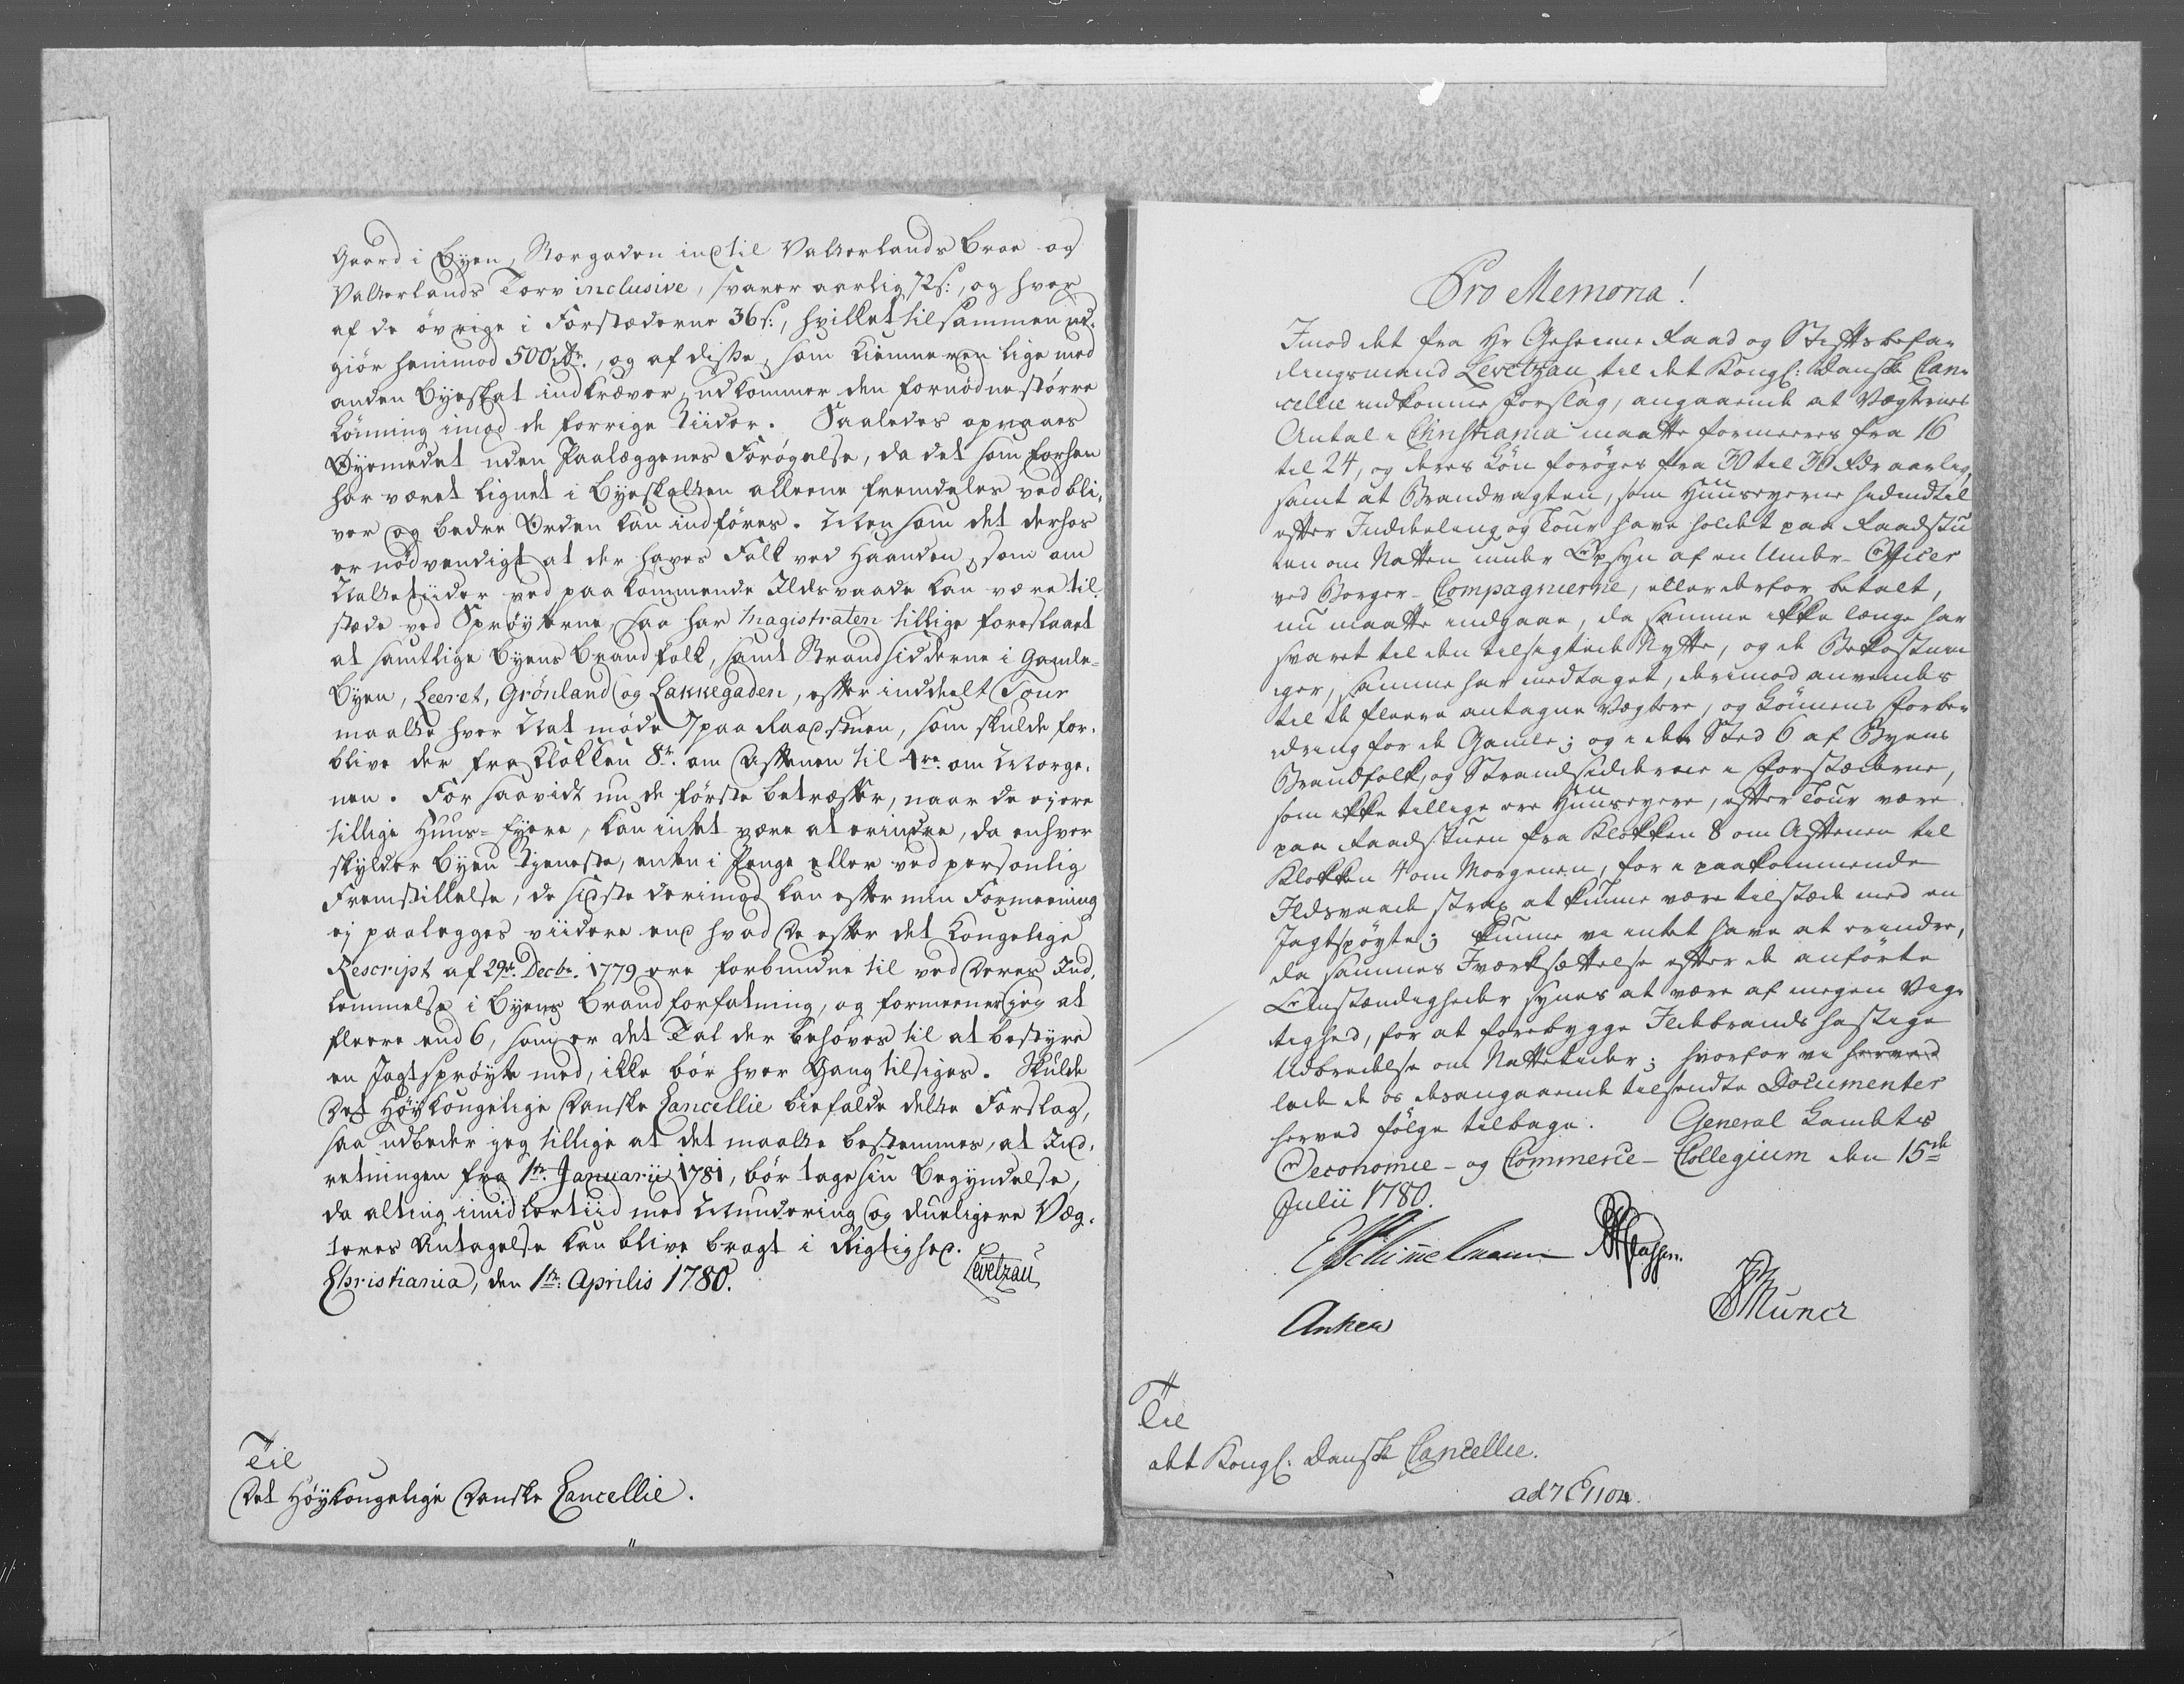 Gaard i Byen, Storgaden ind til Vatterlands Broe og
Vatterlands Torv inclusive, svarer aarlig 72 s:, og hver
af de øvrige i Forstæderne 36 s:, hvilket tilsammen ud-
giør henimod 500 rdr., og af disse, som Kiemneren lige med
anden Byeskat indkræver, udkommer den fornødne større
Lønning imod de forrige Tiider. Saaledes opnaaes
Øyemedet uden Paalæggenes Forøgelse, da det som forhen
har været lignet i Byeskatten alleene fremdeles ved bli-
ver og bedre Orden kan indføres. Men som det derhos
er nødvendigt at der haves Folk ved Haanden, som om
Nattetiider ved paakommende Ildsvaade kan være til
stæde ved Sprøyterne, saa har Magistraten tillige foreslaaet
at samtlige Byens Brandfolk, samt Strandsidderne i Gamle-
Byen, Leeret, Grønland og Lakkegaden, efter inddeelt Tour
maatte hver Nat møde 7 paa Raadstuen, som skulde for-
blive der fra Klokken 8te. om Aftenen til 4re. om Morge-
nen. For saavidt nu de første betræffer, naar de ejere
tillige Huus-Ejere, kan intet være at erindre, da enhver
skylder Byen Tjeneste, enten i Penge eller ved personlig
Fremstillelse, de sidste derimod kan efter min Formeening
ej paalegges viidere end hvad De efter det Kongelige
Rescript af 29de. Decbr. 1779 ere forbundne til ved Deres Ind-
lemmelse i Byens Brandforfatning, og formeener jeg at
fleere end 6, som er det Tal der behøves til at bestyre
en Jagtsprøyte med, ikke bør hver Gang tilsiges. Skulde
Det Høykongelige Danske Cancellie biefalde dette Forslag,
saa udbeder jeg tillige at det maatte bestemmes, at Ind-
retningen fra 1te. Januarii 1781, bør tage sin Begyndelse,
da alting imidlertiid med Mundering og dueligere Væg-
teres Antagelse kan blive bragt i Rigtighed.
Christiania, den 1te. Aprilis 1780.
Levetzau
Til
Det Høykongelige Danske Cancellie.
Pro Memoria!
Imod det fra Hr Geheime Raad og Stiftsbefa-
lingsmand Levetzau til det Kongl: Danske Can-
cellie indkomne Forslag, angaaende at Vægternes
Antal i Christiania maatte formeeres fra 16
til 24, og deres Løn forøges fra 30 til 36 Rdr aarlig,
samt at Brandvagten, som Huuseyerne hidindtil
efter Inddeeling og Tour have holdet paa Raadstu
en om Natten under Opsyn af en Under-Officer
ved Borger-Compagnierne, eller derfor betalt,
nu maatte indgaae, da samme ikke længe har
svaret til den tilsigtede Nytte, og de Bekostnin
ger, samme har medtaget, derimod anvendes
til de fleere antagne Vægtere, og Lønnens Forbe-
dring for de Gamle; og i dets Sted 6 af Byens
Brandfolk, og Strandsidderne i Forstæderne,
som ikke tillige ere Huuseyere, efter Tour være
paa Raadstuen fra Klokken 8 om Aftenen til
Klokken 4 om Morgenen, for i paakommende
Ildsvaade strax at kunne være tilstæde med en
Jagtspøyte; kunne vi intet have at erindre,
da sammes Iværksættelse efter de anførte
Omstændigheder synes at være af megen Vig-
tighed, for at forebygge Ildebrands hastige
Udbredelse om Nattetider; hvorfor vi herved
lade de os desangaaende tilsendte Documenter
herved følge tilbage. General Landets
Oeconomie- og Commerce-Collegium den 15de
Julii 1780.
ESchimmelmann Classen.
Anker
Munck
Til
det Kongl: Danske Cancellie.